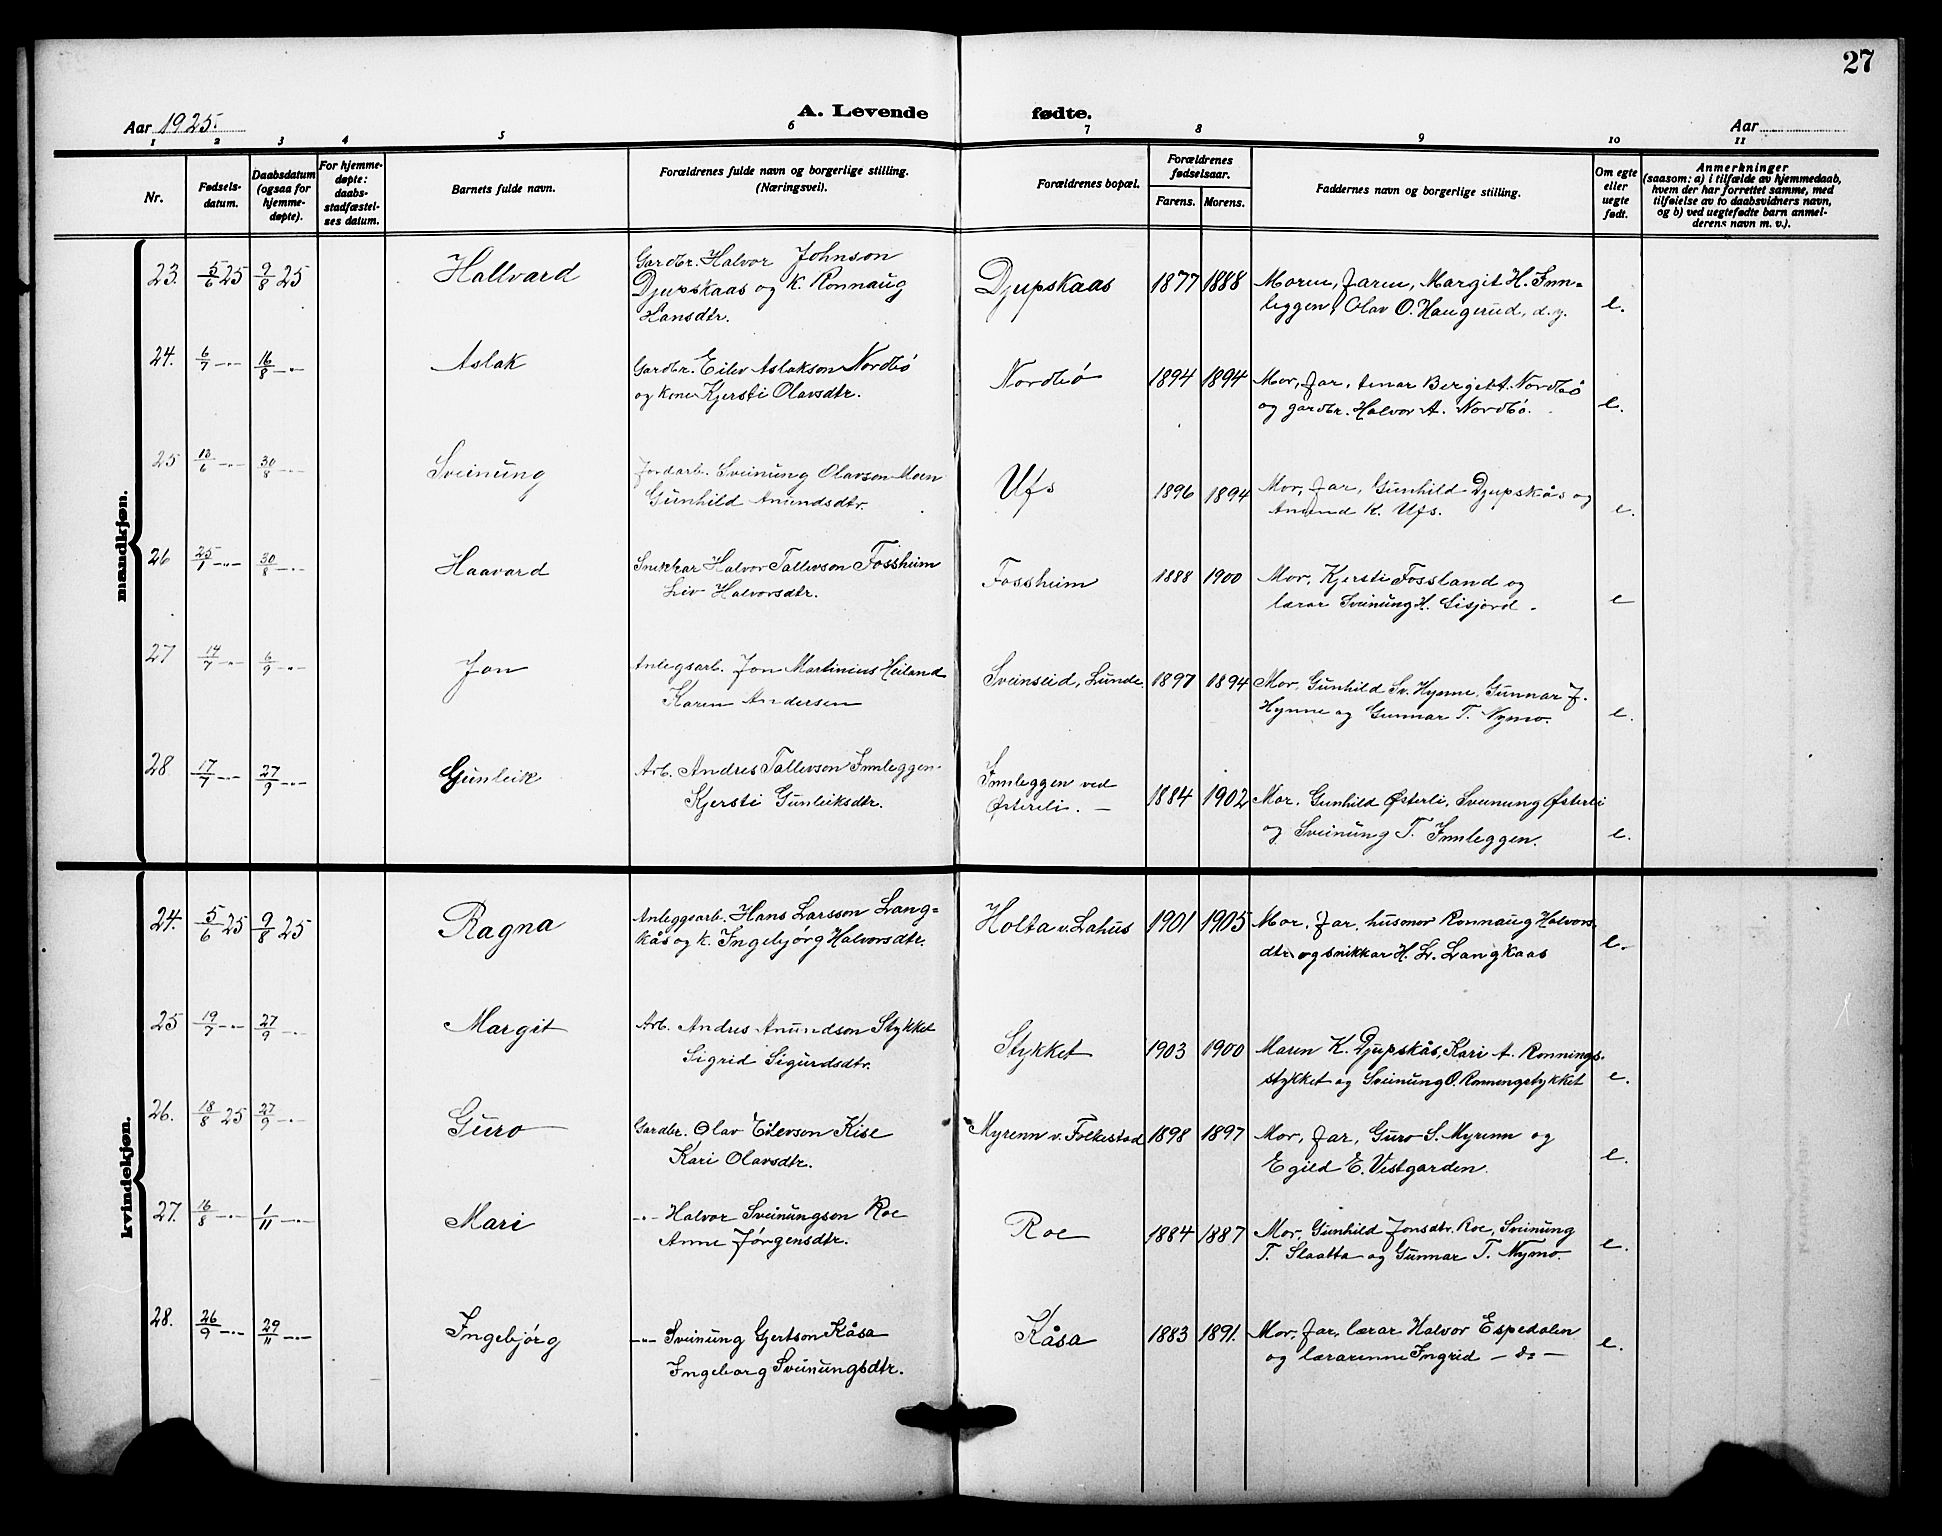 27
Aar 1925.
A. Levende fødte.
Aar
1 2 3 4 5 6 7 8 9 10 11
Nr.
Fødsels-
datum.
Daabsdatum
(ogsaa for
hjemme-
døpte).
For hjemme-
døpte:
daabs-
stadfæstel-
ses datum.
Barnets fulde navn.
Forældrenes fulde navn og borgerlige stilling.
(Næringsvei).
Forældrenes bopæl.
Forældrenes
fødselsaar.
Farens. Morens.
Faddernes navn og borgerlige stilling.
Om egte
eller
uegte
født.
Anmerkninger
(saasom: a) i tilfælde av hjemmedaab,
hvem der har forrettet samme, med
tilføielse av to daabsvidners navn,
og b) ved uegtefødte barn anmel-
derens navn m. v.).
mandkjøn.
23. 5/6 25 9/8 25 Hallvard Gardbr. Halvor Johnson
Djupskaas og k. Ronnaug
Hansdtr.
Djupskaas 1877 1888 Moren, faren, Margit H. Inn-
leggen, Olav O. Haugerud, d.y. e.
24. 6/7 -"- 16/8 -"- Aslak Gardbr. Eilev Aslakson Nordbø
og kone Kjersti Olavsdtr.
Nordbø 1894 1894 Mor, far, Berget A. Nordbø
og gardbr. Halvor A. Nordbø. e.
25 13/6 -"- 30/8 -"- Sveinung Jordarb. Sveinung Olavson Moen
Gunhild Anundsdtr.
Ufs 1896 1894 Mor, far, Gunhild Djupskås og
Anund K. Ufs. e.
26 25/1 -"- 30/8 -"- Haavard Snikkar Halvor Tallevson Fossheim
Liv Halvorsdtr.
Fossheim 1888 1900 Mor, Kjersti Fossland og
lærar Sveinung H. Lisjord. e
27 14/7 -"- 6/9 -"- Jon Anlegsarb. Jon Martinius Heiland
Karen Andersen
Sveinseid, Lunde. 1897 1894 Mor, Gunhild Sv. Hynne, Gunnar J.
Hynne og Gunnar T. Nymo. e.
28 17/7 -"- 27/9 -"- Gunleik Arb. Andres Tallevson Innleggen.
Kjersti Gunleiksdtr.
Innleggen ved
Østerli. — 1884 1902 Mor. Gunhild Østerli, Sveinung Østerli
og Sveinung T. Innleggen. e.
kvindekjøn.
24. 5/6 25 9/8 25 Ragna Anleggsarb. Hans Larsson Lang-
kås og k. Ingebjørg Halvorsdtr.
Holta v. Lahus 1901 1905 Mor, far, husmor Ronnaug Halvors-
dtr. og snikkar H. L. Langkaas e.
25 19/7 -"- 27/9 -"- Margit Arb. Andres Anundson Stykket
Sigrid Sigurdsdtr.
Stykket 1903 1900 Maren K. Djupskås, Kari A. Ronnings-
stykket og Sveinung O. Ronningstykket e.
26. 18/8 25 27/9 -"- Guro Gardbr. Olav Eilevson Kise
Kari Olavsdtr.
Myrenn v. Folkestad 1898 1897 Mor, far, Guro S. Myrenn og
Egild E. Vestgarden. e.
27. 16/8 -"- 1/11 -"- Mari -"- Halvor Sveinungson Roe
Anne Jørgensdtr.
Roe 1884 1887 Mor, Gunhild Jonsdtr. Roe, Sveinung
T. Slaatta og Gunnar T. Nymo. e.
28. 26/9 -"- 29/11 -"- Ingebjørg -"- Sveinung Gjertson Kåsa
Ingeborg Sveinungsdtr.
Kåsa 1883 1891. Mor, far, lærar Halvor Espedalen
og lærarinne Ingrid — do — e.